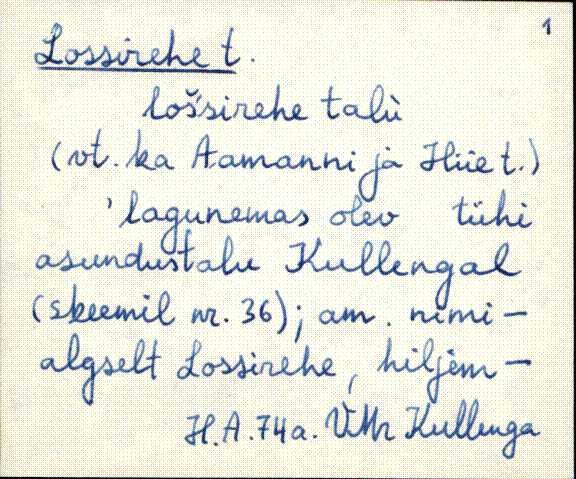 1
Lossirehe t.
lošsirehe talu
(vt. ka Aamanni ja Hiie t.)
'lagunemas olev tühi
asundustalu Kullengal
(skeemil nr. 36); am. nimi –
algselt Lossirehe, hiljem –
H.A. 74a. VMr Kullenga